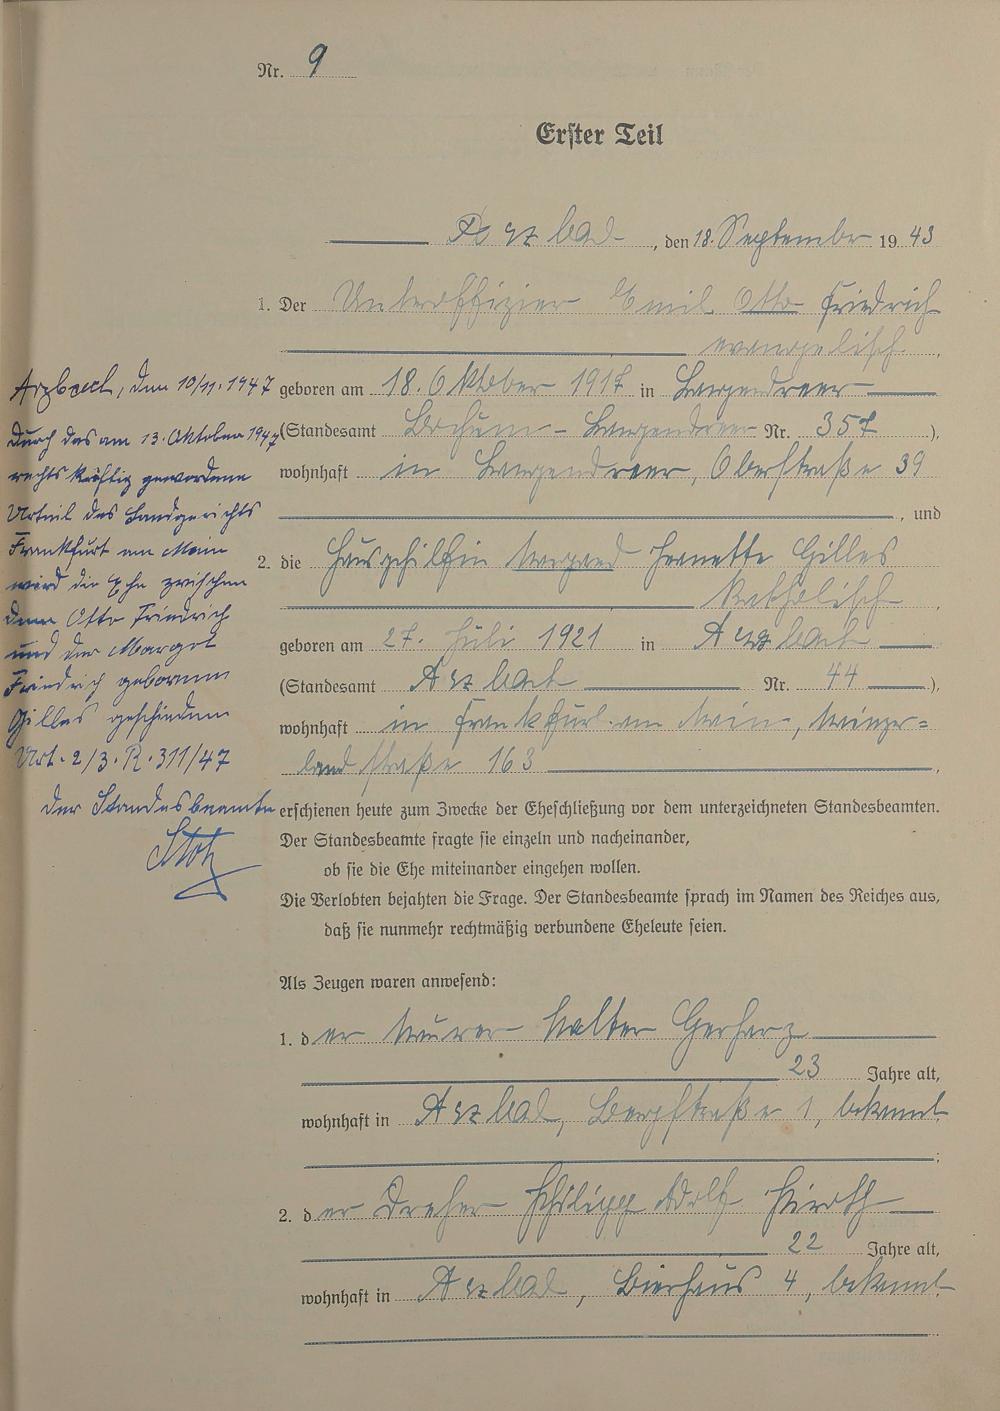 Nr. 9
Erster Teil
Arzbach, den 18. September 1943
1. Der Unteroffizier Emil Otto Friedrich
evangelisch,
geboren am 18. Oktober 1917 in Langendreer
(Standesamt Bochum-Langendreer Nr. 357),
wohnhaft in Langendreer, Oberstraße 39
, und
2. die Hausgehilfin Margaret Jeanette Gilles
katholisch,
geboren am 27. Juli 1921 in Arzbach
(Standesamt Arzbach Nr. 44),
wohnhaft in Frankfurt am Main, Mainzer=
landstraße 163,
erschienen heute zum Zwecke der Eheschließung vor dem unterzeichneten Standesbeamten.
Der Standesbeamte fragte sie einzeln und nacheinander,
ob sie die Ehe miteinander eingehen wollen.
Die Verlobten bejahten die Frage. Der Standesbeamte sprach im Namen des Reiches aus,
daß sie nunmehr rechtmäßig verbundene Eheleute seien.
Als Zeugen waren anwesend:
1. der Maurer Walter Gerharz
23 Jahre alt,
wohnhaft in Arzbach, Bergstraße 1, bekannt
;
2. der Dreher Philipp Adolf
22 Jahre alt,
wohnhaft in Arzbach, Bierhaus 4, bekannt
Arzbach, den 10/11. 1947
Durch das am 13. Oktober 1947
rechtskräftig gewordene
Urteil des Landgerichts
Frankfurt am Main
wird die Ehe zwischen
dem Otto Friedrich
und der Margot
Friedrich geborenen
Gilles geschieden
Urt. 2/3. R. 311/47
Der Standesbeamte